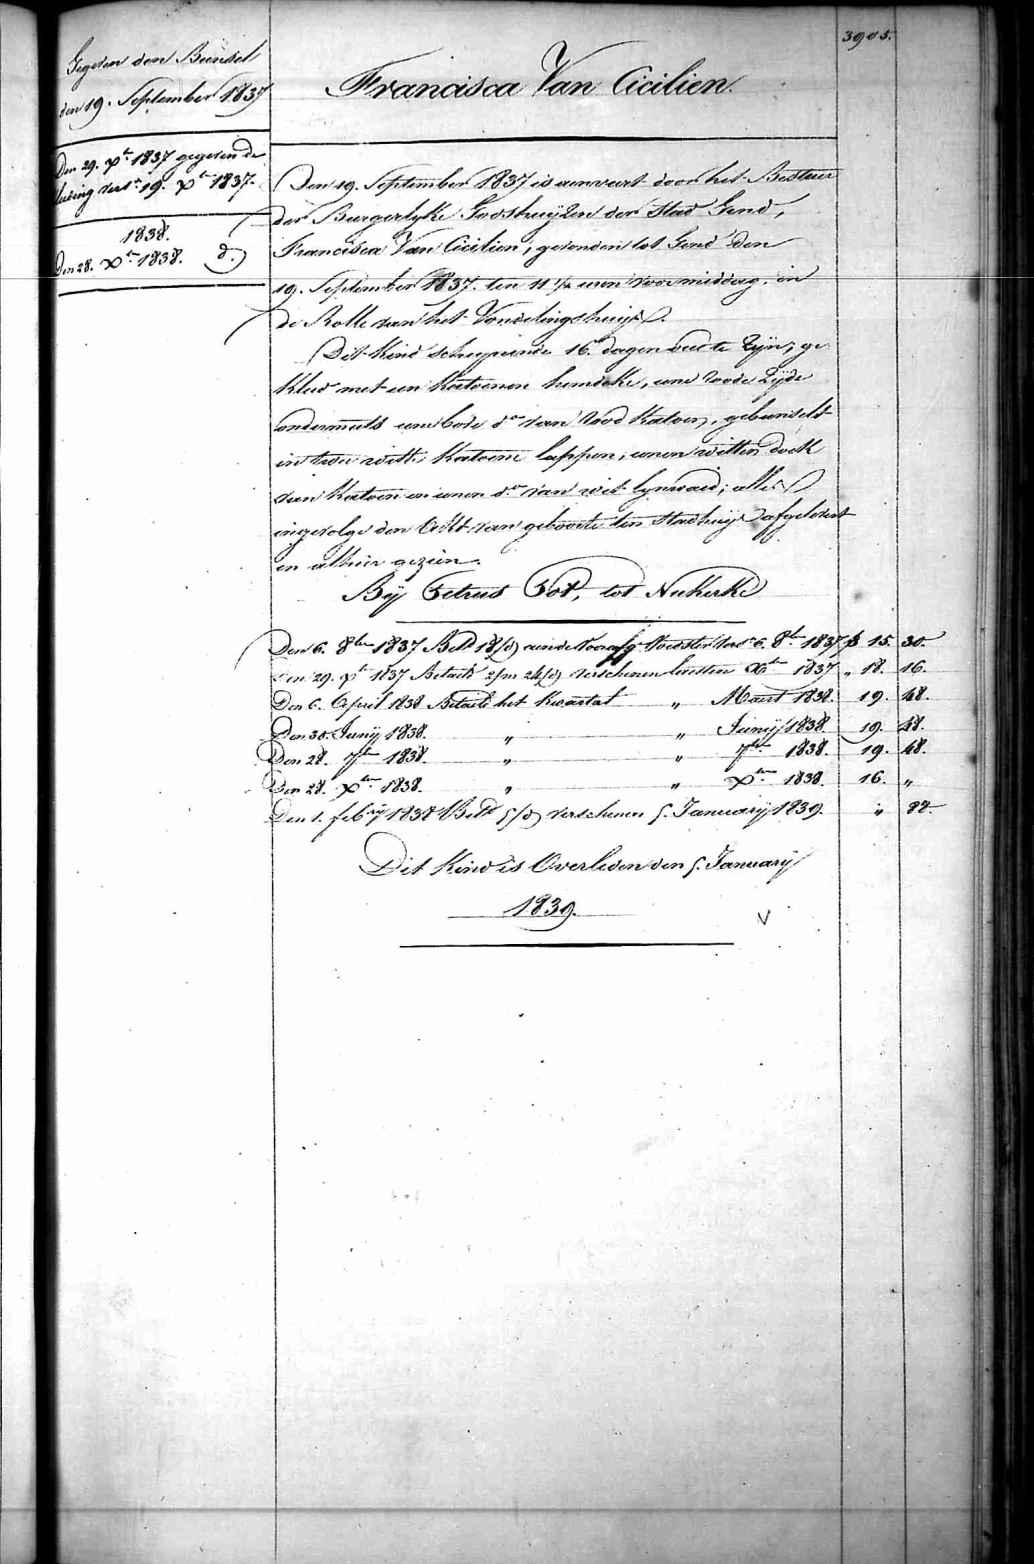 3905.
Gegeven den Bundel
den 19. September 1837
Den 29. Xbre 1837 gegeven de
19. Xbre 1837.
1838.
Den 28. Xbre 1838. d.
Francisca Van Cicilien.
Den 19. September 1837 is aenveert door het Bestuer
der Burgerlyke Godshuijzen der Stad Gend,
Francisca Van Cicilien, gevonden tot Gend den
19. September 1837. ten 11 1/2 uren voormiddag, in
de Rolle van het Vondelingshuijs.
Dit Kind scheynende 16. dagen oud te zijn, ge
kleed met een Katoenen hemdeke, eene roode zijde
ondermuts eene bove do van rood Katoen, gebunselt
in twee witte Katoene lappen, eenen witten doek
van Katoen en eenen do van wit lynwaed; alles
ingevolge den Ackt van geboorte ten Stadhuijse afgelevert
en alhier gezien.
Bij Petrus Pot, tot Nukerke
Den 6. 8bre 1837 Bet. 18/d aen de Voorafg. Voedster vers. 6. 8bre 1837 f 15. 30.
Den 29. Xbre 1837 Betaelt 2/m 24/d verschenen laetsten Xbre 1837 „ 18. 16.
Den 6. April 1838 Betaelt het Kwartal „ Maert 1838. 19. 48.
Den 30. Junij 1838. „ „ Junij 1838. 19. 48.
Den 28. 7bre 1838. „ „ 7bre 1838. 19. 48.
Den 28. Xbre 1838. „ „ Xbre 1838. 16. „
Den 1. feby 1838 Bet. 5/d verschenen 5. Januarij 1839. „ 88.
Dit Kind is Overleden den 5. Januarij
1839.
V